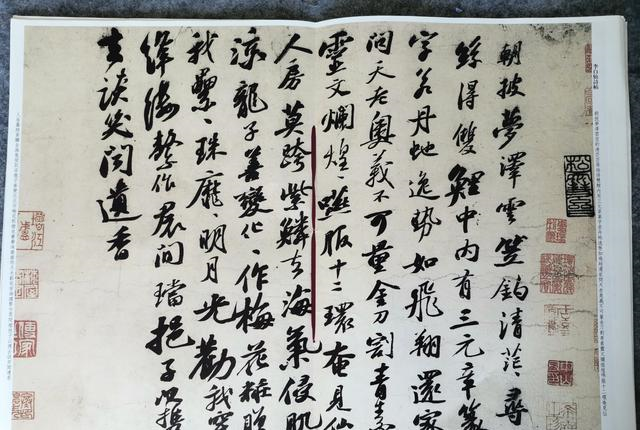 李白仙詩帖
朝披夢澤雲笠釣清茫〻尋
絲得雙鯉中内有三元章篆
字若丹虵逸勢如飛翔還家
問天老奥義不可量金刀割青素
靈文爛煌〻嚥服十二環奄見仙
人房莫跨紫鱗去海氣侵肌
凉龍子善變化〻作梅花粧贈
我纍〻珠靡〻明月光勸我穿
絳縷繫作裙間璫挹子以攜
去談笑聞遺香